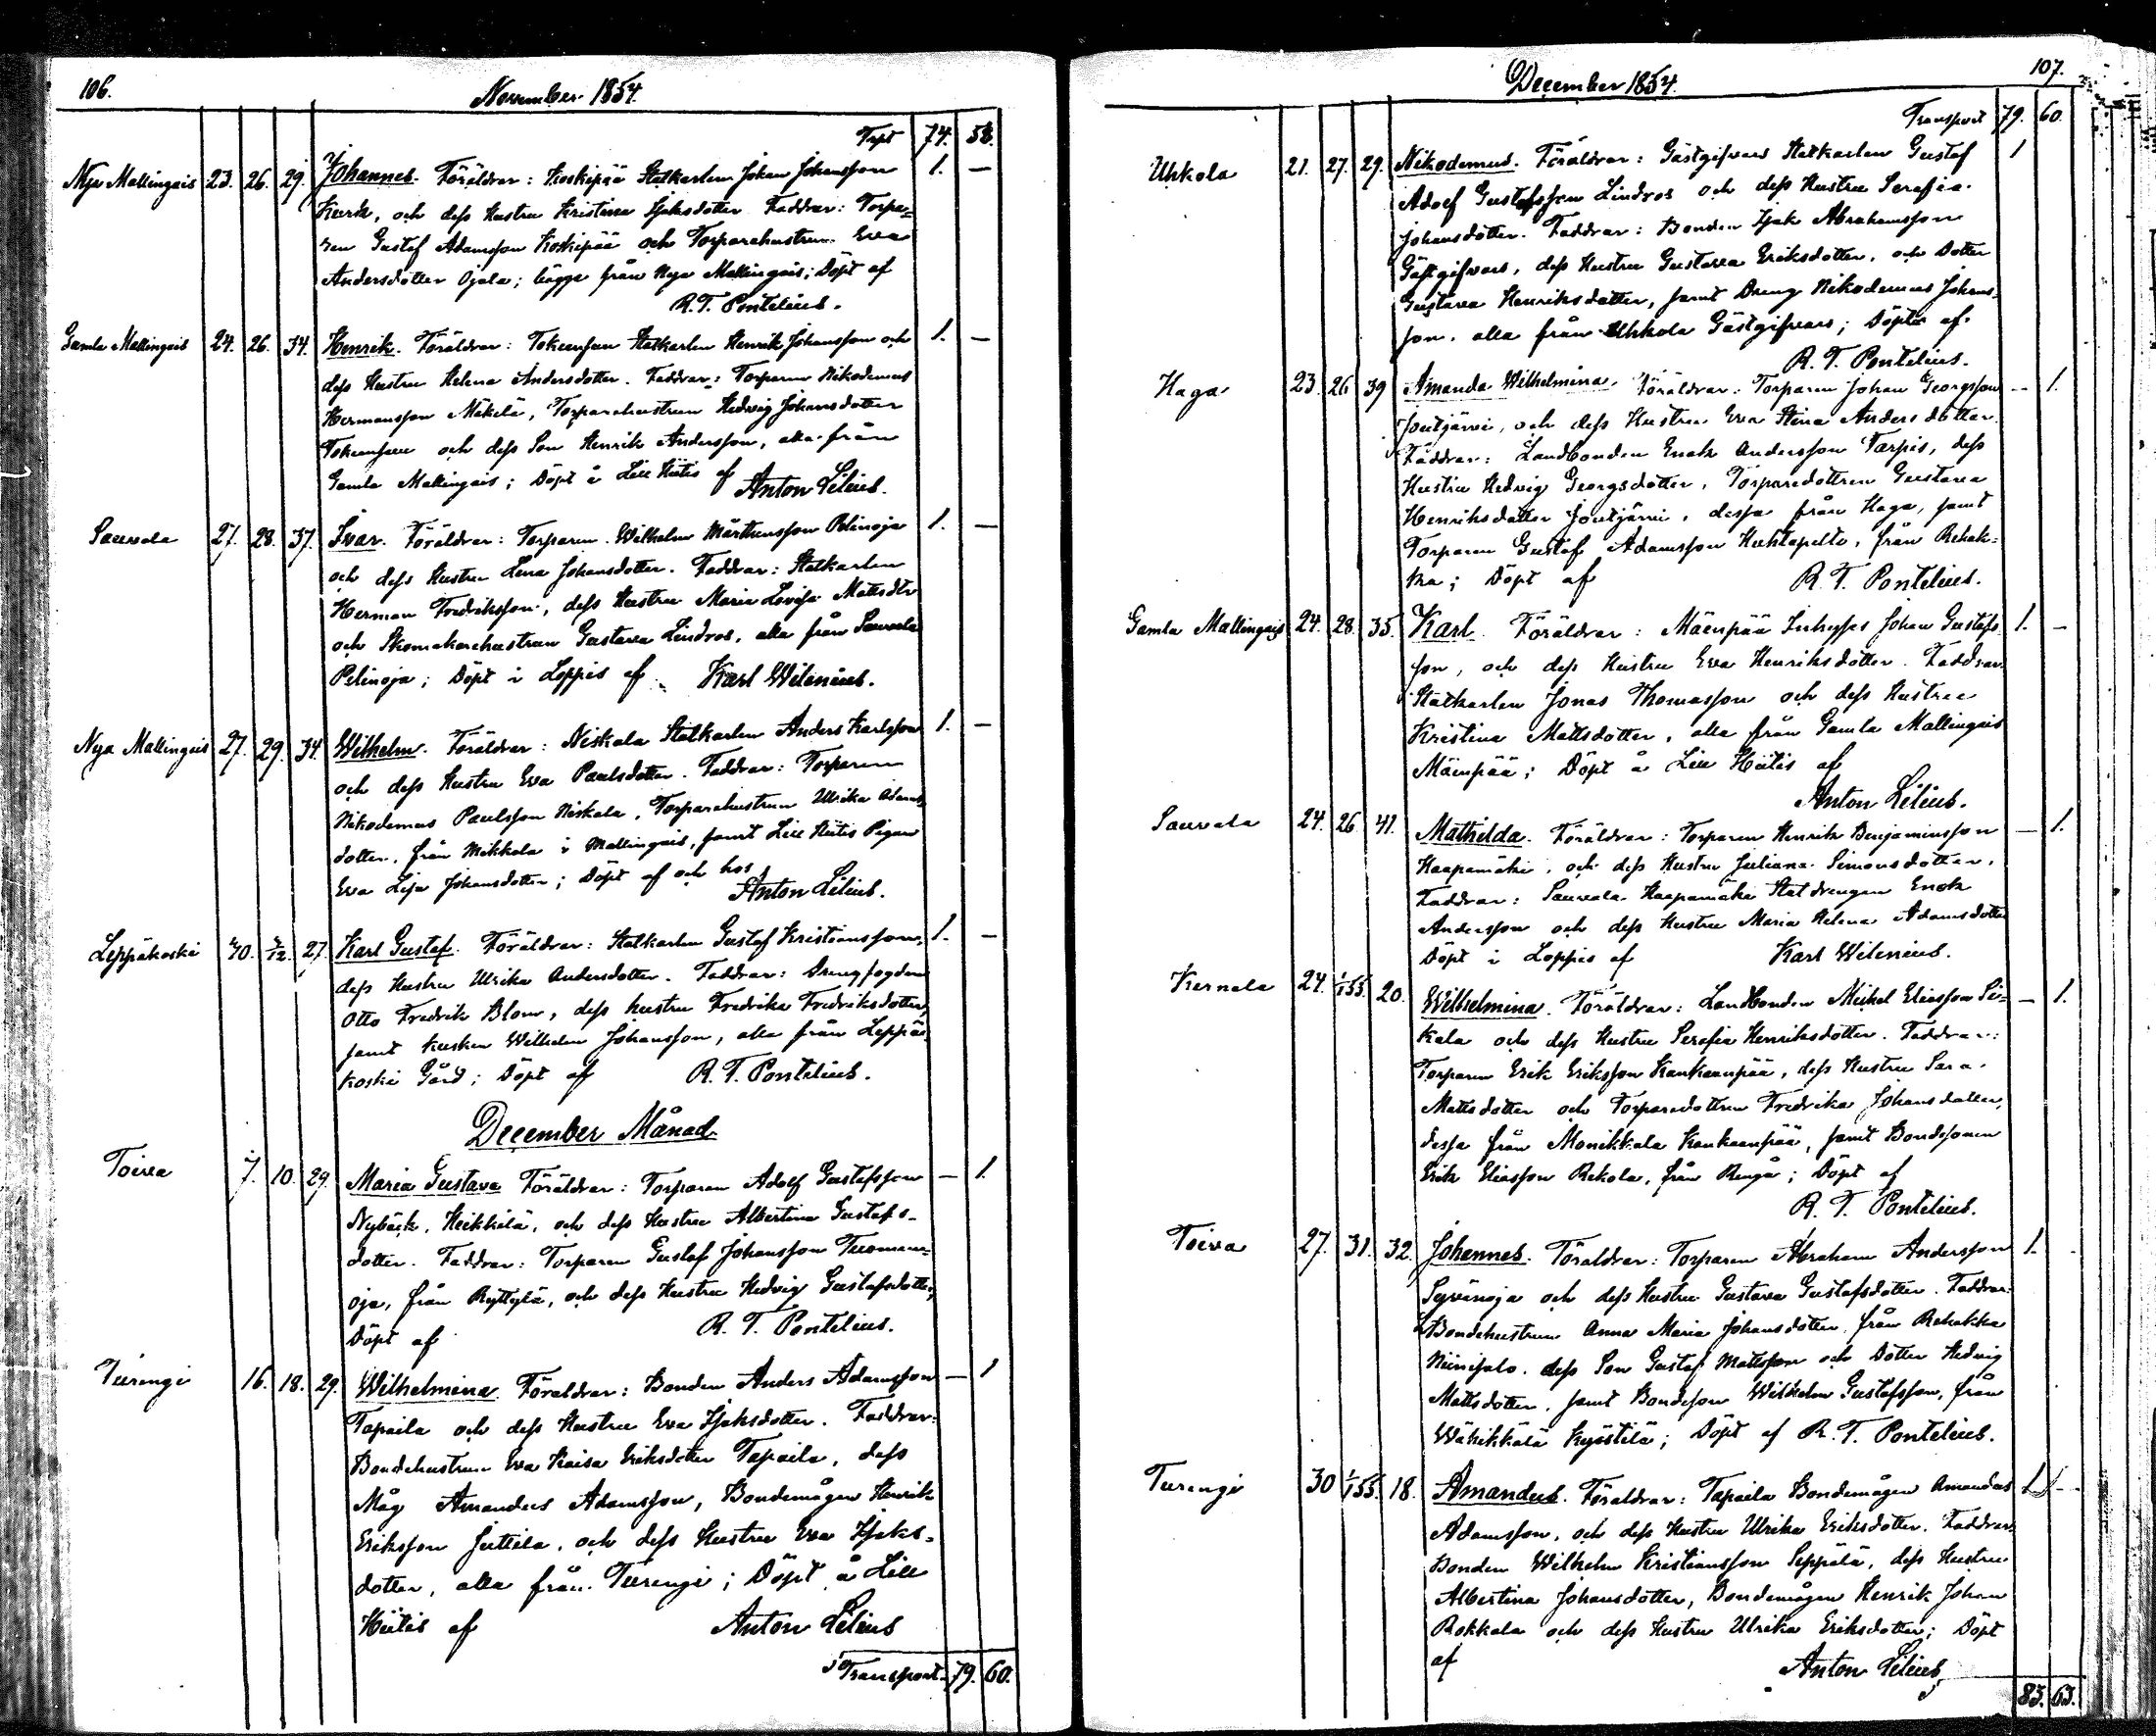 106.
November 1854.
Trpt 74. 58.
Nya Mallingais 23. 26. 29. Johannes. Föräldrar: Koskipää Statkarlen Johan Johansson 1. —
Kurk, och dess Hustru Kristina Isaksdotter. Faddrar: Torpa-
ren Gustaf Adamsson Koskipää och Torparehustrun Eva
Andersdotter Ojala; bägge från Nya Mallingais; Döpt af
R. T. Pontelius.
Gamla Mallingais 24. 26. 34. Henrik. Föräldrar: Statkarlen Henrik Johansson och 1. —
dess Hustru Helena Andersdotter. Faddrar: Torparen Nikodemus
Hermansson Mäkelä, Torparehustrun Hedvig Johansdotter
och dess Son Henrik Andersson, alla från
Gamla Mallingais; Döpt å Lill Hiitis af Anton Lilius.
Sauvala 27. 28. 37. Ivar. Föräldrar: Torparen Wilhelm Mårtensson Pelinoja 1. —
och dess Hustru Lena Johansdotter. Faddrar: Statkarlen
Herman Fredriksson, dess Hustru Maria Lovisa Mattsdtr
och Skomakarehustrun Gustava Lindros, alla från Sauvala
Pelinoja; Döpt i Loppis af Karl Wilenius.
Nya Mallingais 27. 29. 34. Wilhelm. Föräldrar: Niskala Statkarlen Anders Karlsson 1. —
och dess Hustru Eva Paulsdotter. Faddrar: Torparen
Nikodemus Paulsson Niskala, Torparehustrun Ulrika Adams-
dotter, från Mikkola i Mallingais, samt Lill Hiitis Pigan
Eva Lisa Johansdotter; Döpt af och hos
Anton Lilius.
Leppäkoski 30. 3/12. 27. Karl Gustaf. Föräldrar: Statkarlen Gustaf Kristiansson, 1. —
dess Hustru Ulrika Andersdotter. Faddrar: Drengfogden
Otto Fredrik Blom, dess hustru Fredrika Fredriksdotter,
samt kusken Wilhelm Johansson, alla från Leppä-
koski Gård; Döpt af R. T. Pontelius.
December Månad.
Toivea 7. 10. 29. Maria Gustava Föräldrar: Torparen Adolf Gustafsson — 1.
Nybäck, Heikkilä, och dess Hustru Albertina Gustafs-
dotter. Faddrar: Torparen Gustaf Johansson Tuoman-
oja, från Ryttylä, och dess Hustru Hedvig Gustafsdotter;
Döpt af R. T. Pontelius.
Turengi 16. 18. 29. Wilhelmina. Föräldrar: Bonden Anders Adamsson — 1
Tapaila och dess Hustru Eva Isaksdotter. Faddrar:
Bondehustrun Eva Kaisa Eriksdotter Tapaila, dess
Måg Amandus Adamsson, Bondemågen Henrik
Eriksson Juttila, och dess Hustru Eva Isaks-
dotter, alla från Turengi; Döpt å Lill
Hiitis af Anton Lilius
Transport. 79. 60.
December 1854.
107.
Transport 79. 60.
Uhkola 21. 27. 29. Nikodemus. Föräldrar: Gästgifvars Statkarlen Gustaf 1
Adolf Gustafsson Lindros och dess Hustru Serafia
Johansdotter. Faddrar: Bonden Isak Abrahamsson
Gästgifvars, dess Hustru Gustava Eriksdotter, och Dotter
Gustava Henriksdotter, samt Dreng Nikodemus Johans-
son, alla från Uhkola Gästgifvars; Döpt af
R. T. Pontelius.
Haga 23. 26 39 Amanda Wilhelmina. Föräldrar: Torparen Johan Georgsson — 1.
Joutjärvi, och dess Hustru Eva Stina Andersdotter.
Faddrar: Landbonden Enok Andersson Tarpis, dess
Hustru Hedvig Georgsdotter, Torparedottren Gustava
Henriksdotter Joutjärvi, dessa från Haga, samt
Torparen Gustaf Adamsson Huhtapelto, från Rehak-
ka; Döpt af R. T. Pontelius.
Gamla Mallingais 24. 28. 35. Karl. Föräldrar: Mäenpää Inhyses Johan Gustafs- 1. —
son, och dess Hustru Eva Henriksdotter. Faddrar:
Statkarlen Jonas Thomasson och dess Hustru
Kristina Mattsdotter, alla från Gamla Mallingais
Mäenpää; Döpt å Lill Hiitis af
Anton Lilius.
Sauvala 24. 26. 41. Mathilda. Föräldrar: Torparen Henrik Benjaminsson — 1.
Haapamäki, och dess Hustru Juliana Simonsdotter.
Faddrar: Sauvala Haapamäki Statdrengen Enok
Andersson och dess Hustru Maria Helena Adamsdotter
Döpt i Loppis af Karl Wilenius.
Kernala 24. 1/1 55. 20. Wilhelmina. Föräldrar: Landbonden Mickel Eliasson Si- — 1.
kala och dess Hustru Serafia Henriksdotter. Faddrar:
Torparen Erik Eriksson Kankaanpää, dess Hustru Sara
Mattsdotter och Torparedottren Fredrika Johansdotter,
dessa från Monikkala Kankaanpää, samt Bondesonen
Erik Eliasson Rekola, från Rengo; Döpt af
R. T. Pontelius.
Toivea 27. 31. 32. Johannes. Föräldrar: Torparen Abraham Andersson 1.
Syvänoja och dess Hustru Gustava Gustafsdotter. Faddrar:
Bondehustrun Anna Maria Johansdotter från Rehakka
Niinisalo, dess Son Gustaf Mattsson och Dotter Hedvig
Mattsdotter, samt Bondeson Wilhelm Gustafsson, från
Wähikkälä Kyöstilä; Döpt af R. T. Pontelius.
Turengi 30 1/1 55. 18. Amandus. Föräldrar: Tapaila Bondemågen Amandus 1. —
Adamsson, och dess Hustru Ulrika Eriksdotter. Faddrar:
Bonden Wilhelm Kristiansson Seppälä, dess Hustru
Albertina Johansdotter, Bondemågen Henrik Johan
Rokkala och dess Hustru Ulrika Eriksdotter; Döpt
af Anton Lilius
83. 63.